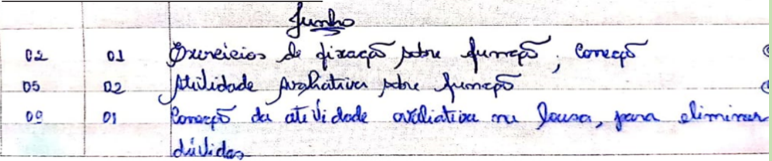 Junho
02 01 Exercícios de fixação sobre função; Correção
05 02 Atividade avaliativa sobre função
09 01 Correção da atividade avaliativa na lousa, para eliminar
dúvidas